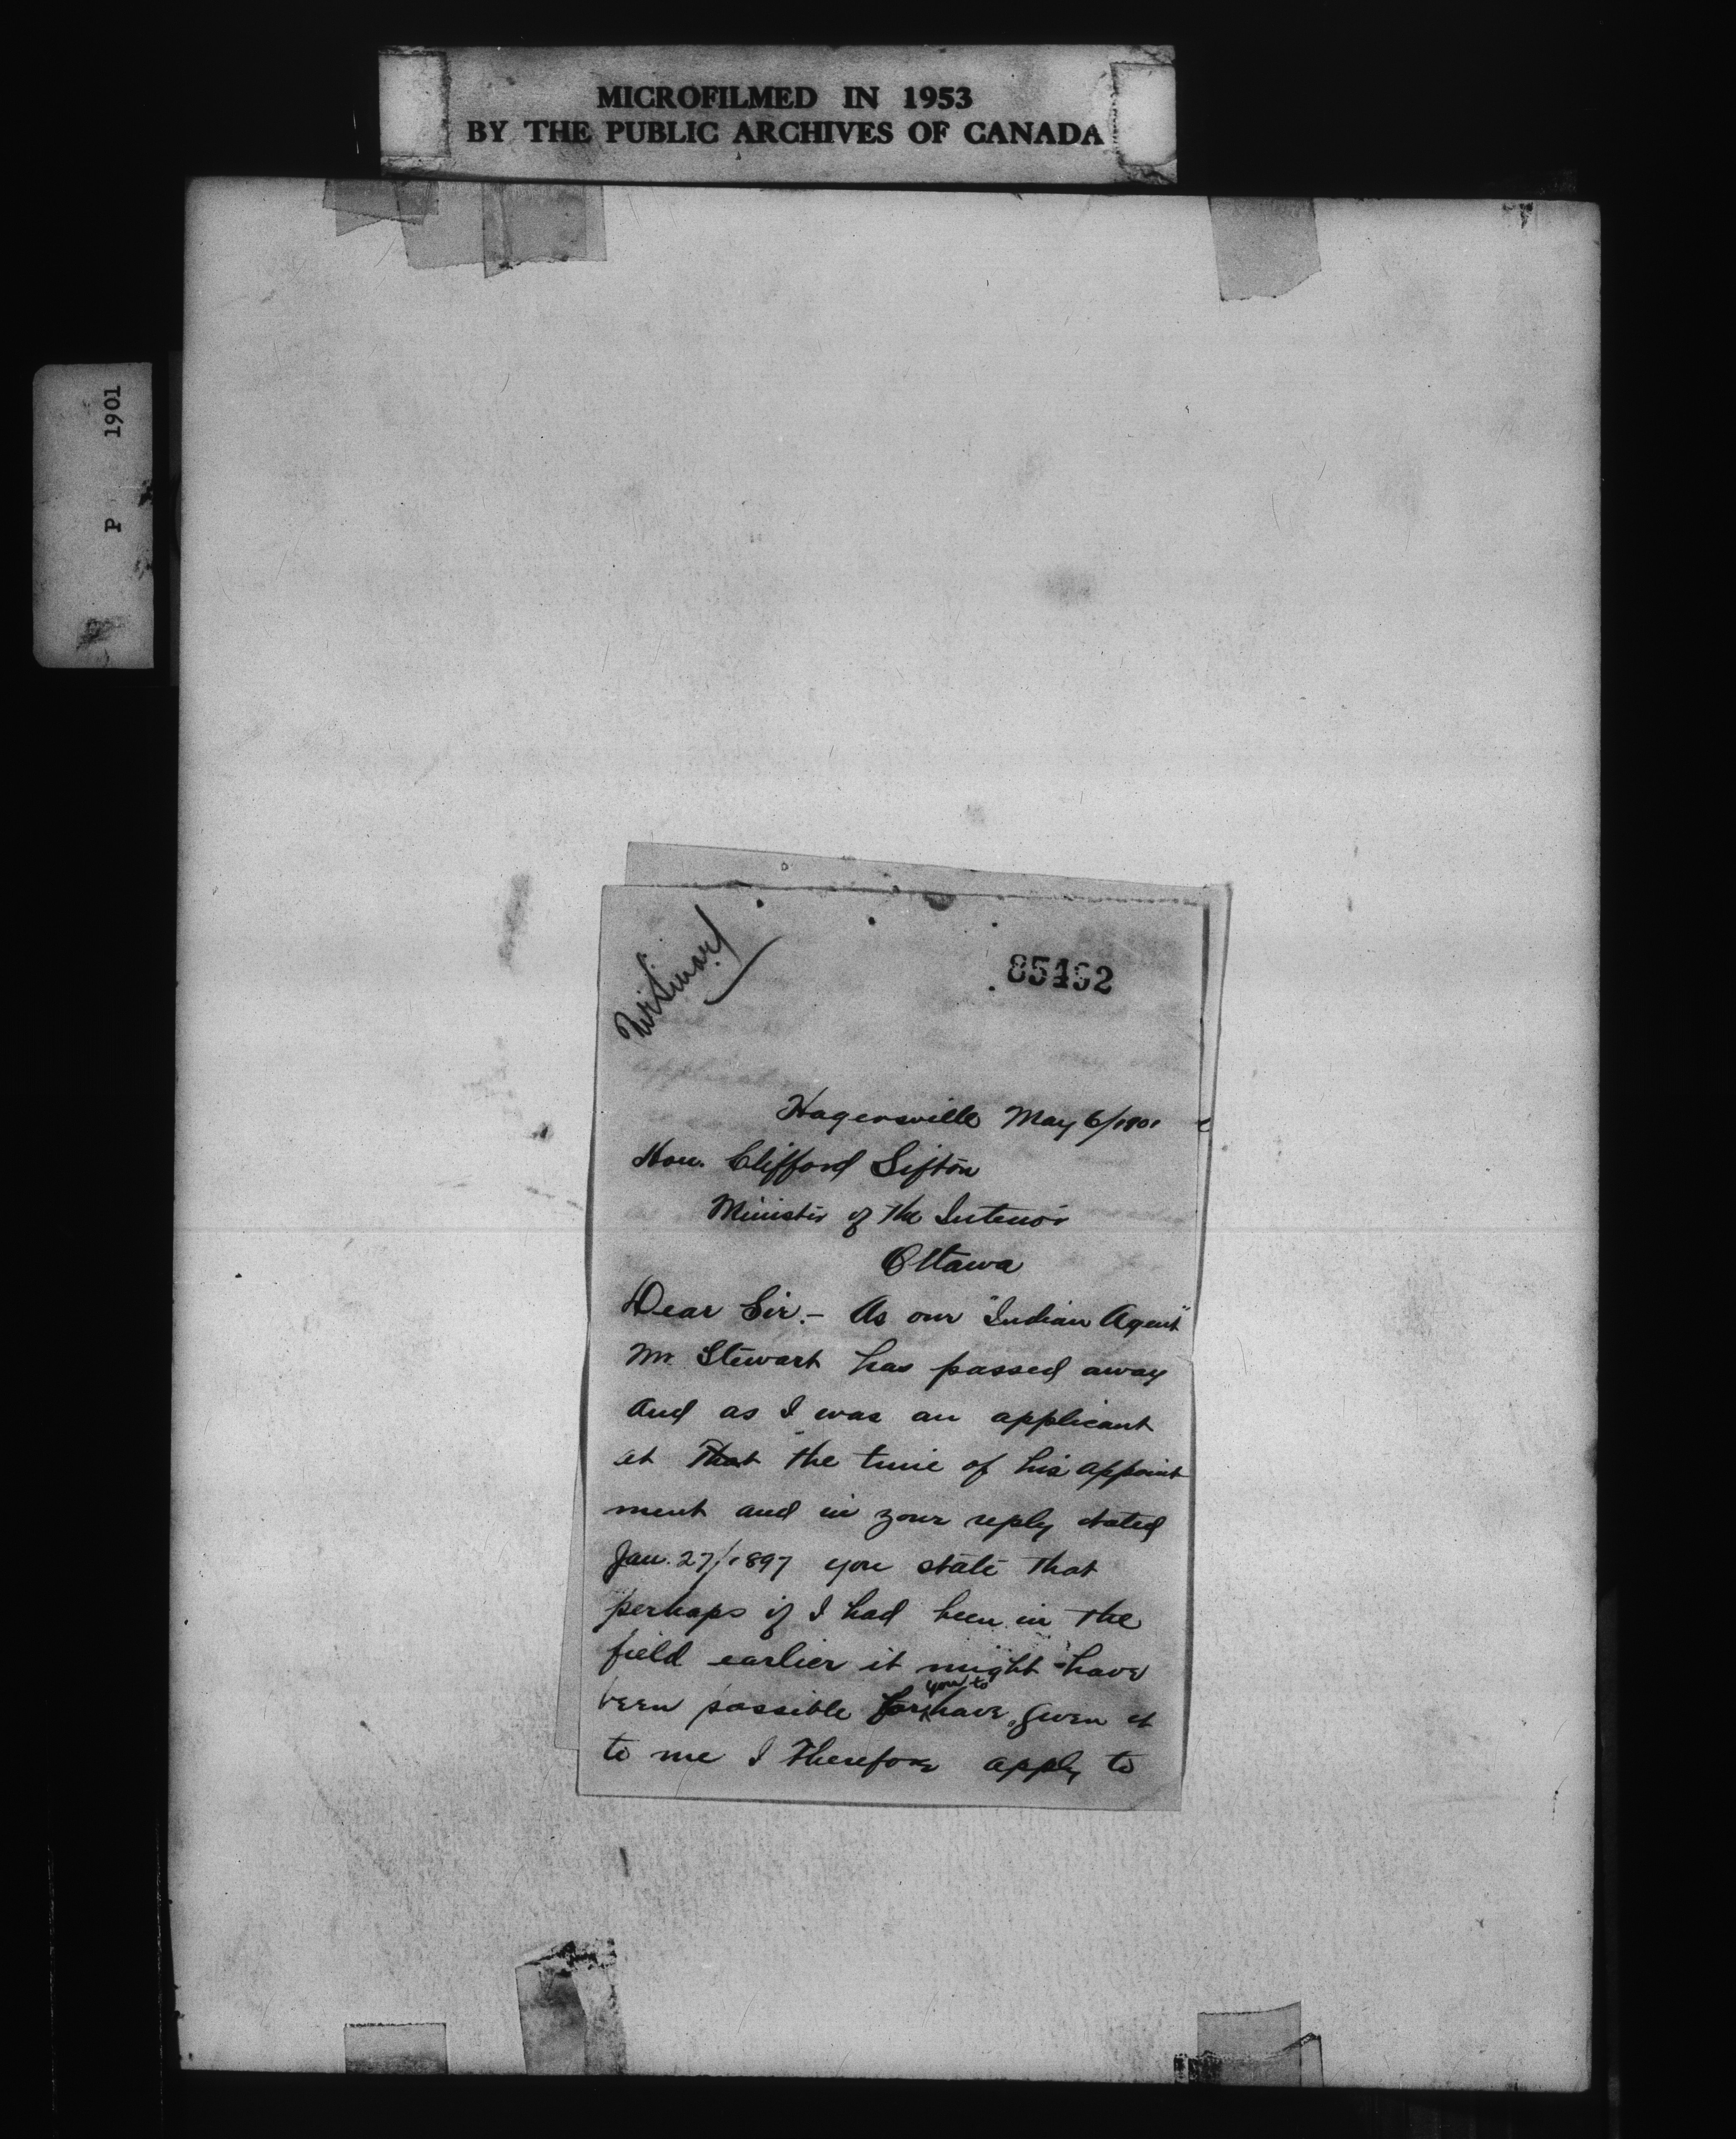 MICROFILMED IN 1953
BY THE PUBLIC ARCHIVES OF CANADA
P 1901
85492
Hagersville May 6/1901
Hon. Clifford Sifton
Minister of the Interior
Ottawa
Dear Sir.- As our "Indian Agent"
Mr. Stewart has passed away
and as I was an applicant
at that the time of his appoint
ment and in your reply dated
Jan. 27/1897 you state that
perhaps if I had been in the
field earlier it might have
been possible for you to have given it
to me I therefore apply to